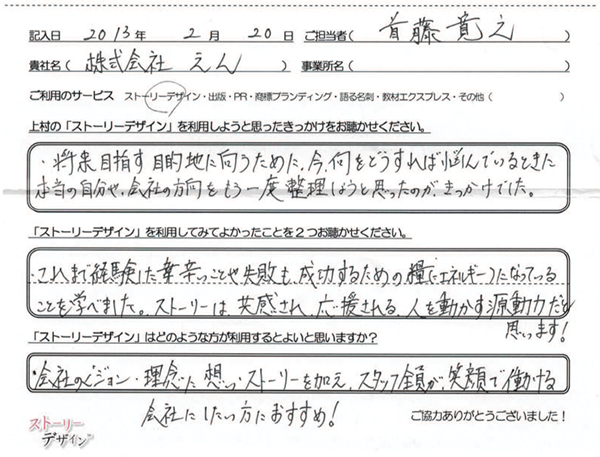 記入日 2013年 2月 20日 ご担当者( 首藤竟之 )
貴社名( 株式会社 えん ) 事業所名( )
ご利用のサービス ストーリーデザイン・出版・PR・商標ブランディング・語る名刺・教材エクスプレス・その他( )
上村の「ストーリーデザイン」を利用しようと思ったきっかけをお聴かせください。
・将来目指す目的地に向うために、今、何をどうすれば悩んでいるときに
本当の自分や、会社の方向をもう一度整理しようと思ったのが、きっかけでした。
「ストーリーデザイン」を利用してみてよかったことを2つお聴かせください。
・これまで経験した辛いことや失敗も、成功するための糧(エネルギー)になっている
ことを学べました。ストーリーは、共感され、応援される、人を動かす源動力だと
思います!
「ストーリーデザイン」はどのような方が利用するとよいと思いますか?
・会社のビジョン・理念に想い・ストーリーを加え、スタッフ全員が、笑顔で働ける
会社にしたい方におすすめ!
ご協力ありがとうございました!
ストーリー
デザイン